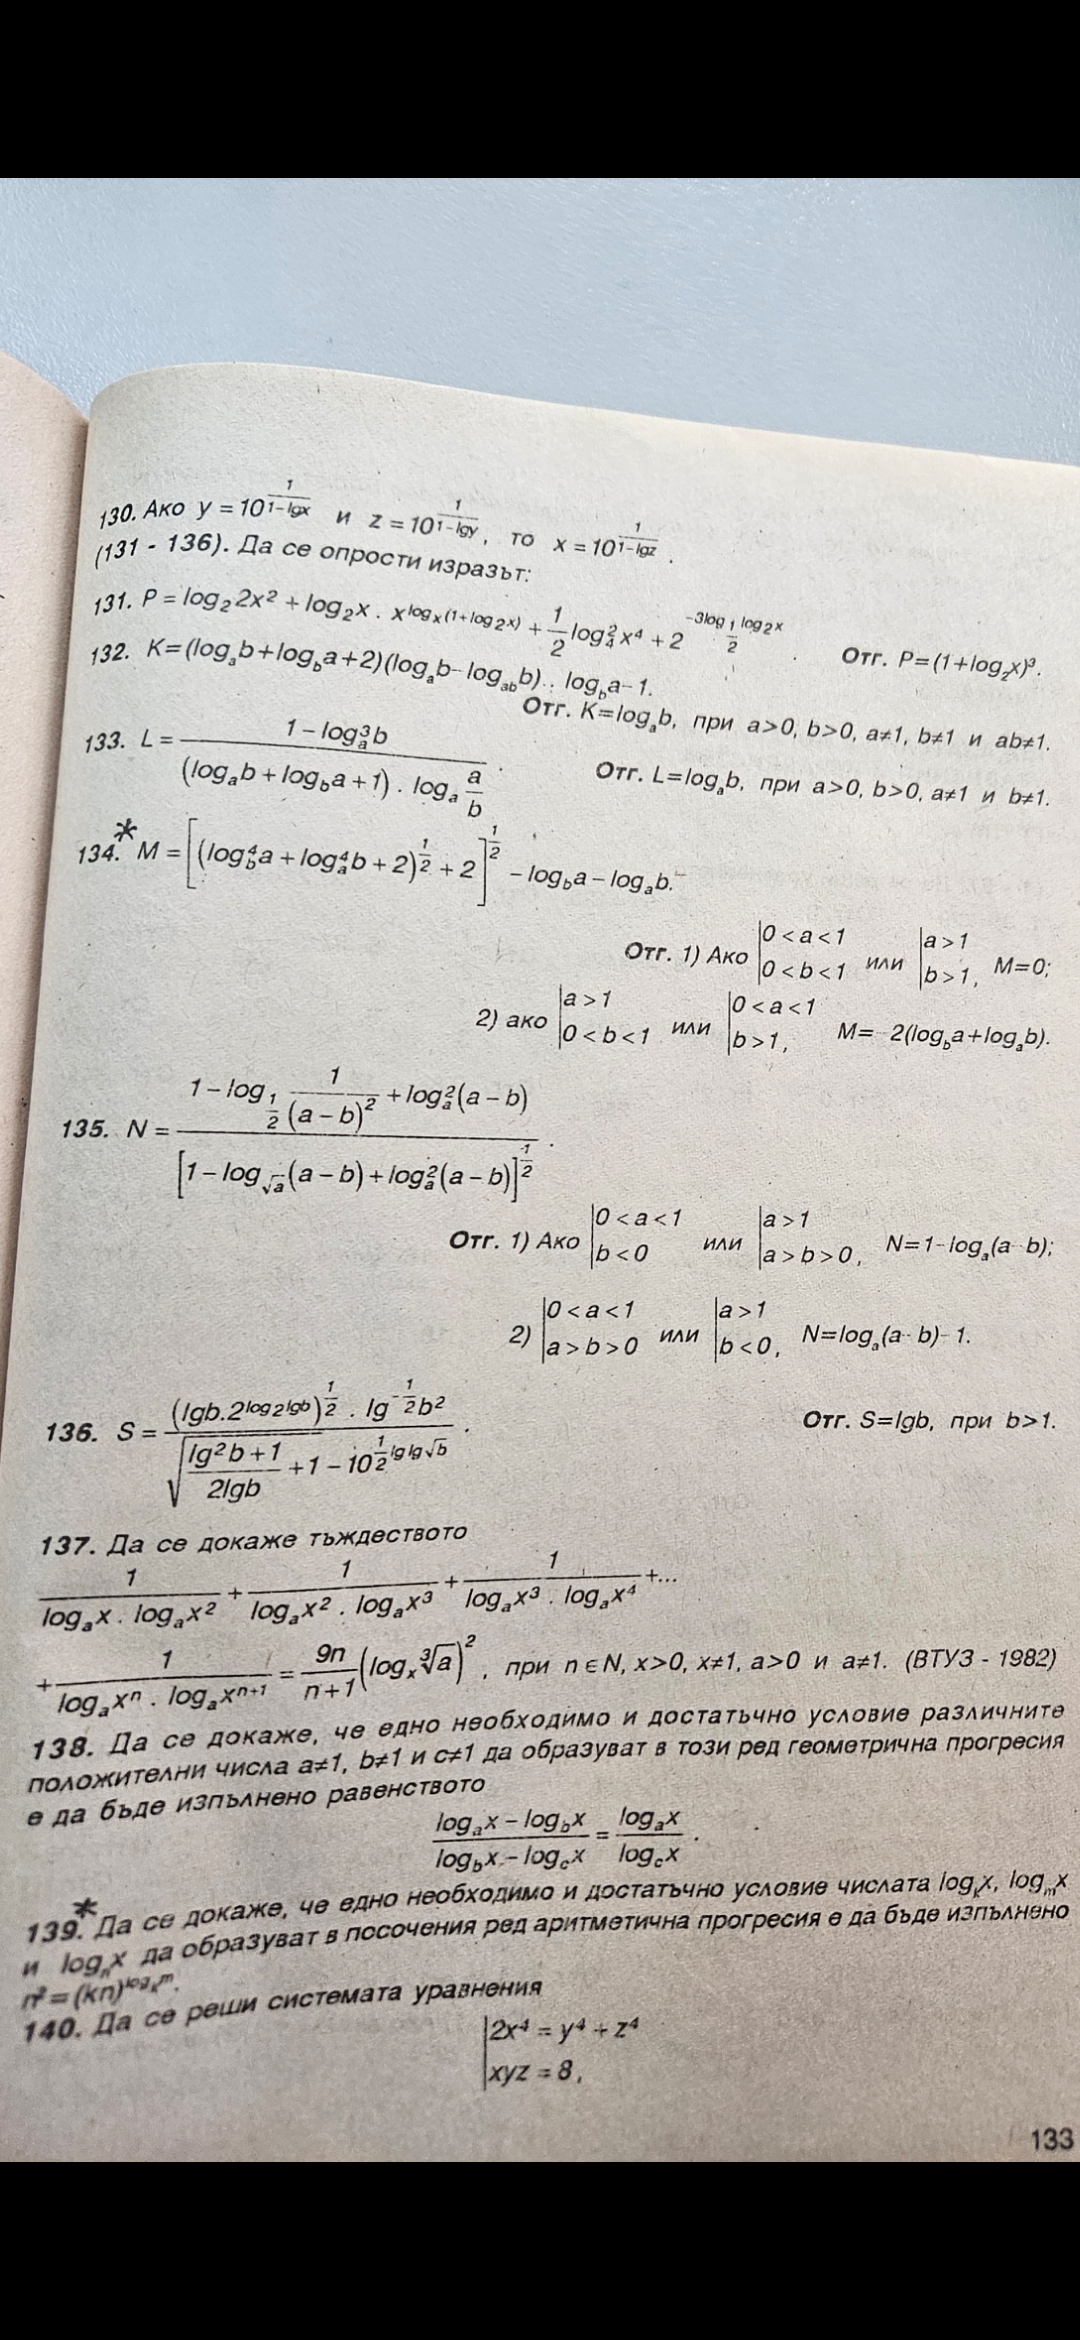 130. Ако y = 10^{\frac{1}{1-lgx}} и z = 10^{\frac{1}{1-lgy}}, то x = 10^{\frac{1}{1-lgz}}.
(131 - 136). Да се опрости изразът:
131. P = log_2 2x^2 + log_2 x . x^{log_x(1+log_2 x)} + \frac{1}{2} log_4^2 x^4 + 2^{-3log_{\frac{1}{2}} log_2 x}. Отг. P=(1+log_2 x)^3.
132. K=(log_a b+log_b a+2)(log_a b-log_{ab} b).. log_b a-1.
Отг. K=log_a b, при a>0, b>0, a≠1, b≠1 и ab≠1.
133. L = \frac{1-log_a^3 b}{(log_a b+log_b a+1) . log_a \frac{a}{b}}. Отг. L=log_a b, при a>0, b>0, a≠1 и b≠1.
134.* M = [(log_b^4 a+log_a^4 b+2)^{\frac{1}{2}}+2]^{\frac{1}{2}} - log_b a - log_a b.
Отг. 1) Ако |0<a<1 |0<b<1 или |a>1 |b>1, M=0;
2) ако |a>1 |0<b<1 или |0<a<1 |b>1, M=-2(log_b a+log_a b).
135. N = \frac{1-log_{\frac{1}{2}} \frac{1}{(a-b)^2}+log_a^2(a-b)}{[1-log_{\sqrt{a}}(a-b)+log_a^2(a-b)]^{\frac{1}{2}}}.
Отг. 1) Ако |0<a<1 |b<0 или |a>1 |a>b>0, N=1-log_a(a-b);
2) |0<a<1 |a>b>0 или |a>1 |b<0, N=log_a(a-b)-1.
136. S = \frac{(lgb.2^{log_2 lgb})^{\frac{1}{2}} . lg^{-\frac{1}{2}}b^2}{\sqrt{\frac{lg^2b+1}{2lgb}+1}-10^{\frac{1}{2}lglg\sqrt{b}}}. Отг. S=lgb, при b>1.
137. Да се докаже тъждеството
\frac{1}{log_a x . log_a x^2} + \frac{1}{log_a x^2 . log_a x^3} + \frac{1}{log_a x^3 . log_a x^4} +...
+\frac{1}{log_a x^n . log_a x^{n+1}} = \frac{9n}{n+1}(log_x \sqrt[3]{a})^2, при n∈N, x>0, x≠1, a>0 и a≠1. (ВТУЗ - 1982)
138. Да се докаже, че едно необходимо и достатъчно условие различните
положителни числа a≠1, b≠1 и c≠1 да образуват в този ред геометрична прогресия
е да бъде изпълнено равенството
\frac{log_a x - log_b x}{log_b x - log_c x} = \frac{log_a x}{log_c x}.
139.* Да се докаже, че едно необходимо и достатъчно условие числата log_k x, log_m x
и log_n x да образуват в посочения ред аритметична прогресия е да бъде изпълнено
n^2 = (kn)^{log_k m}.
140. Да се реши системата уравнения
|2x^4 = y^4 + z^4
|xyz = 8,
133